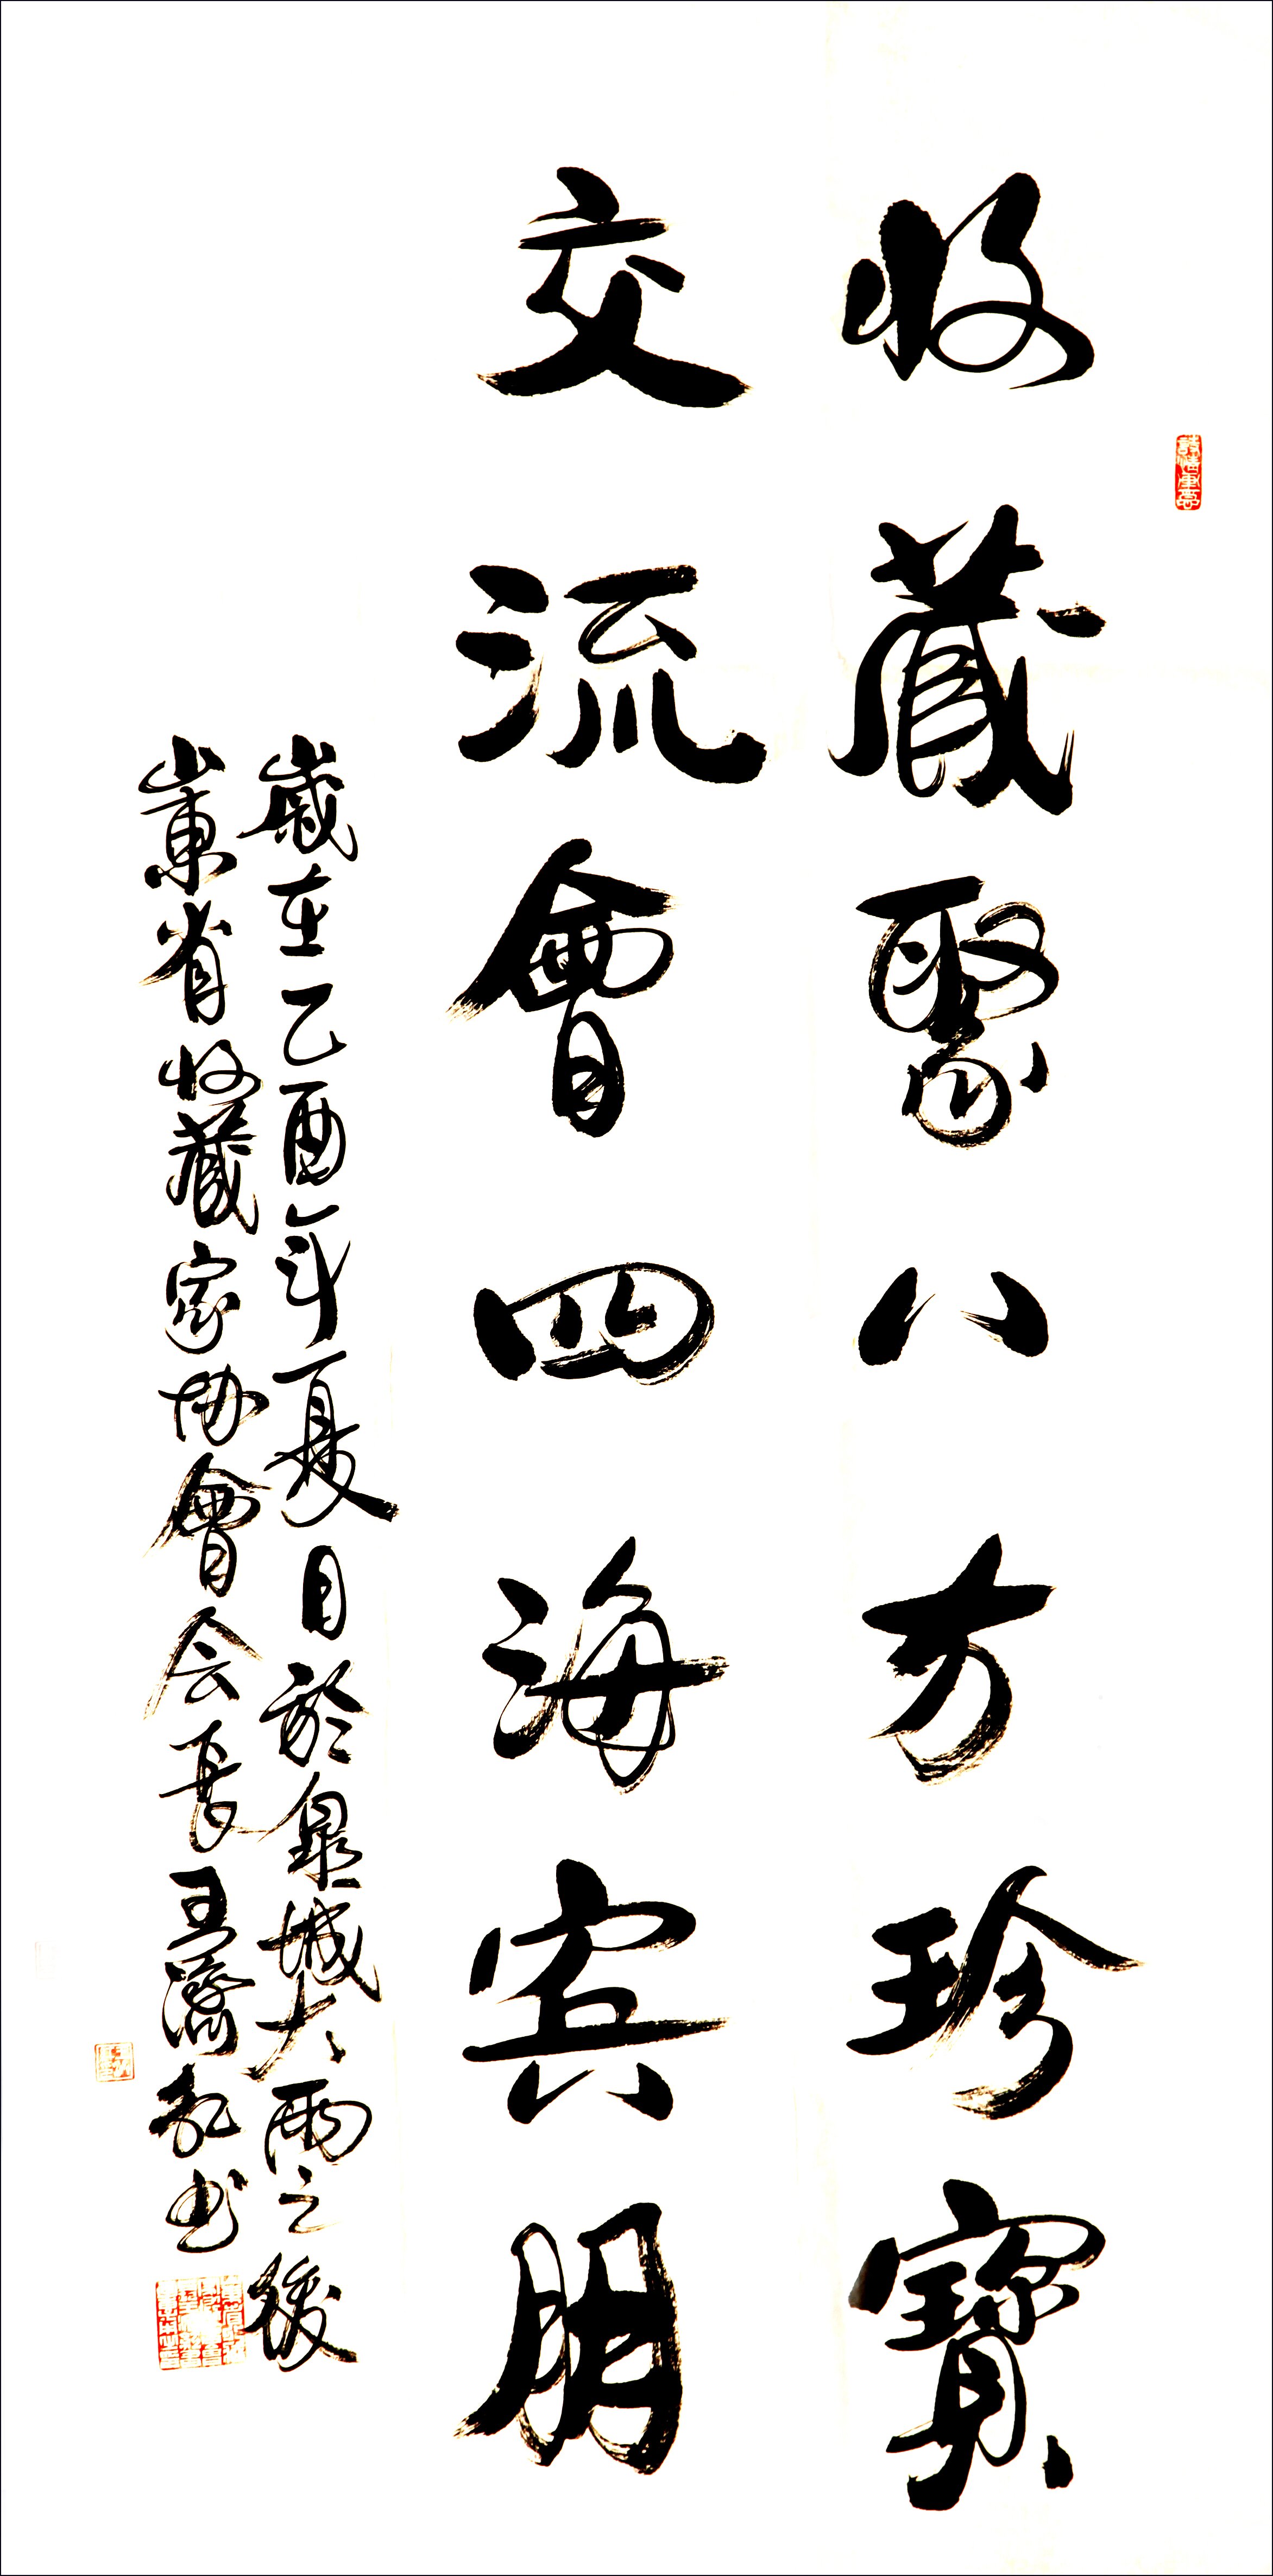 收藏聚八方珍寶
交流會四海宾朋
歲在乙酉年夏日於泉城大雨之後
山東省收藏家协會会長王濟和书